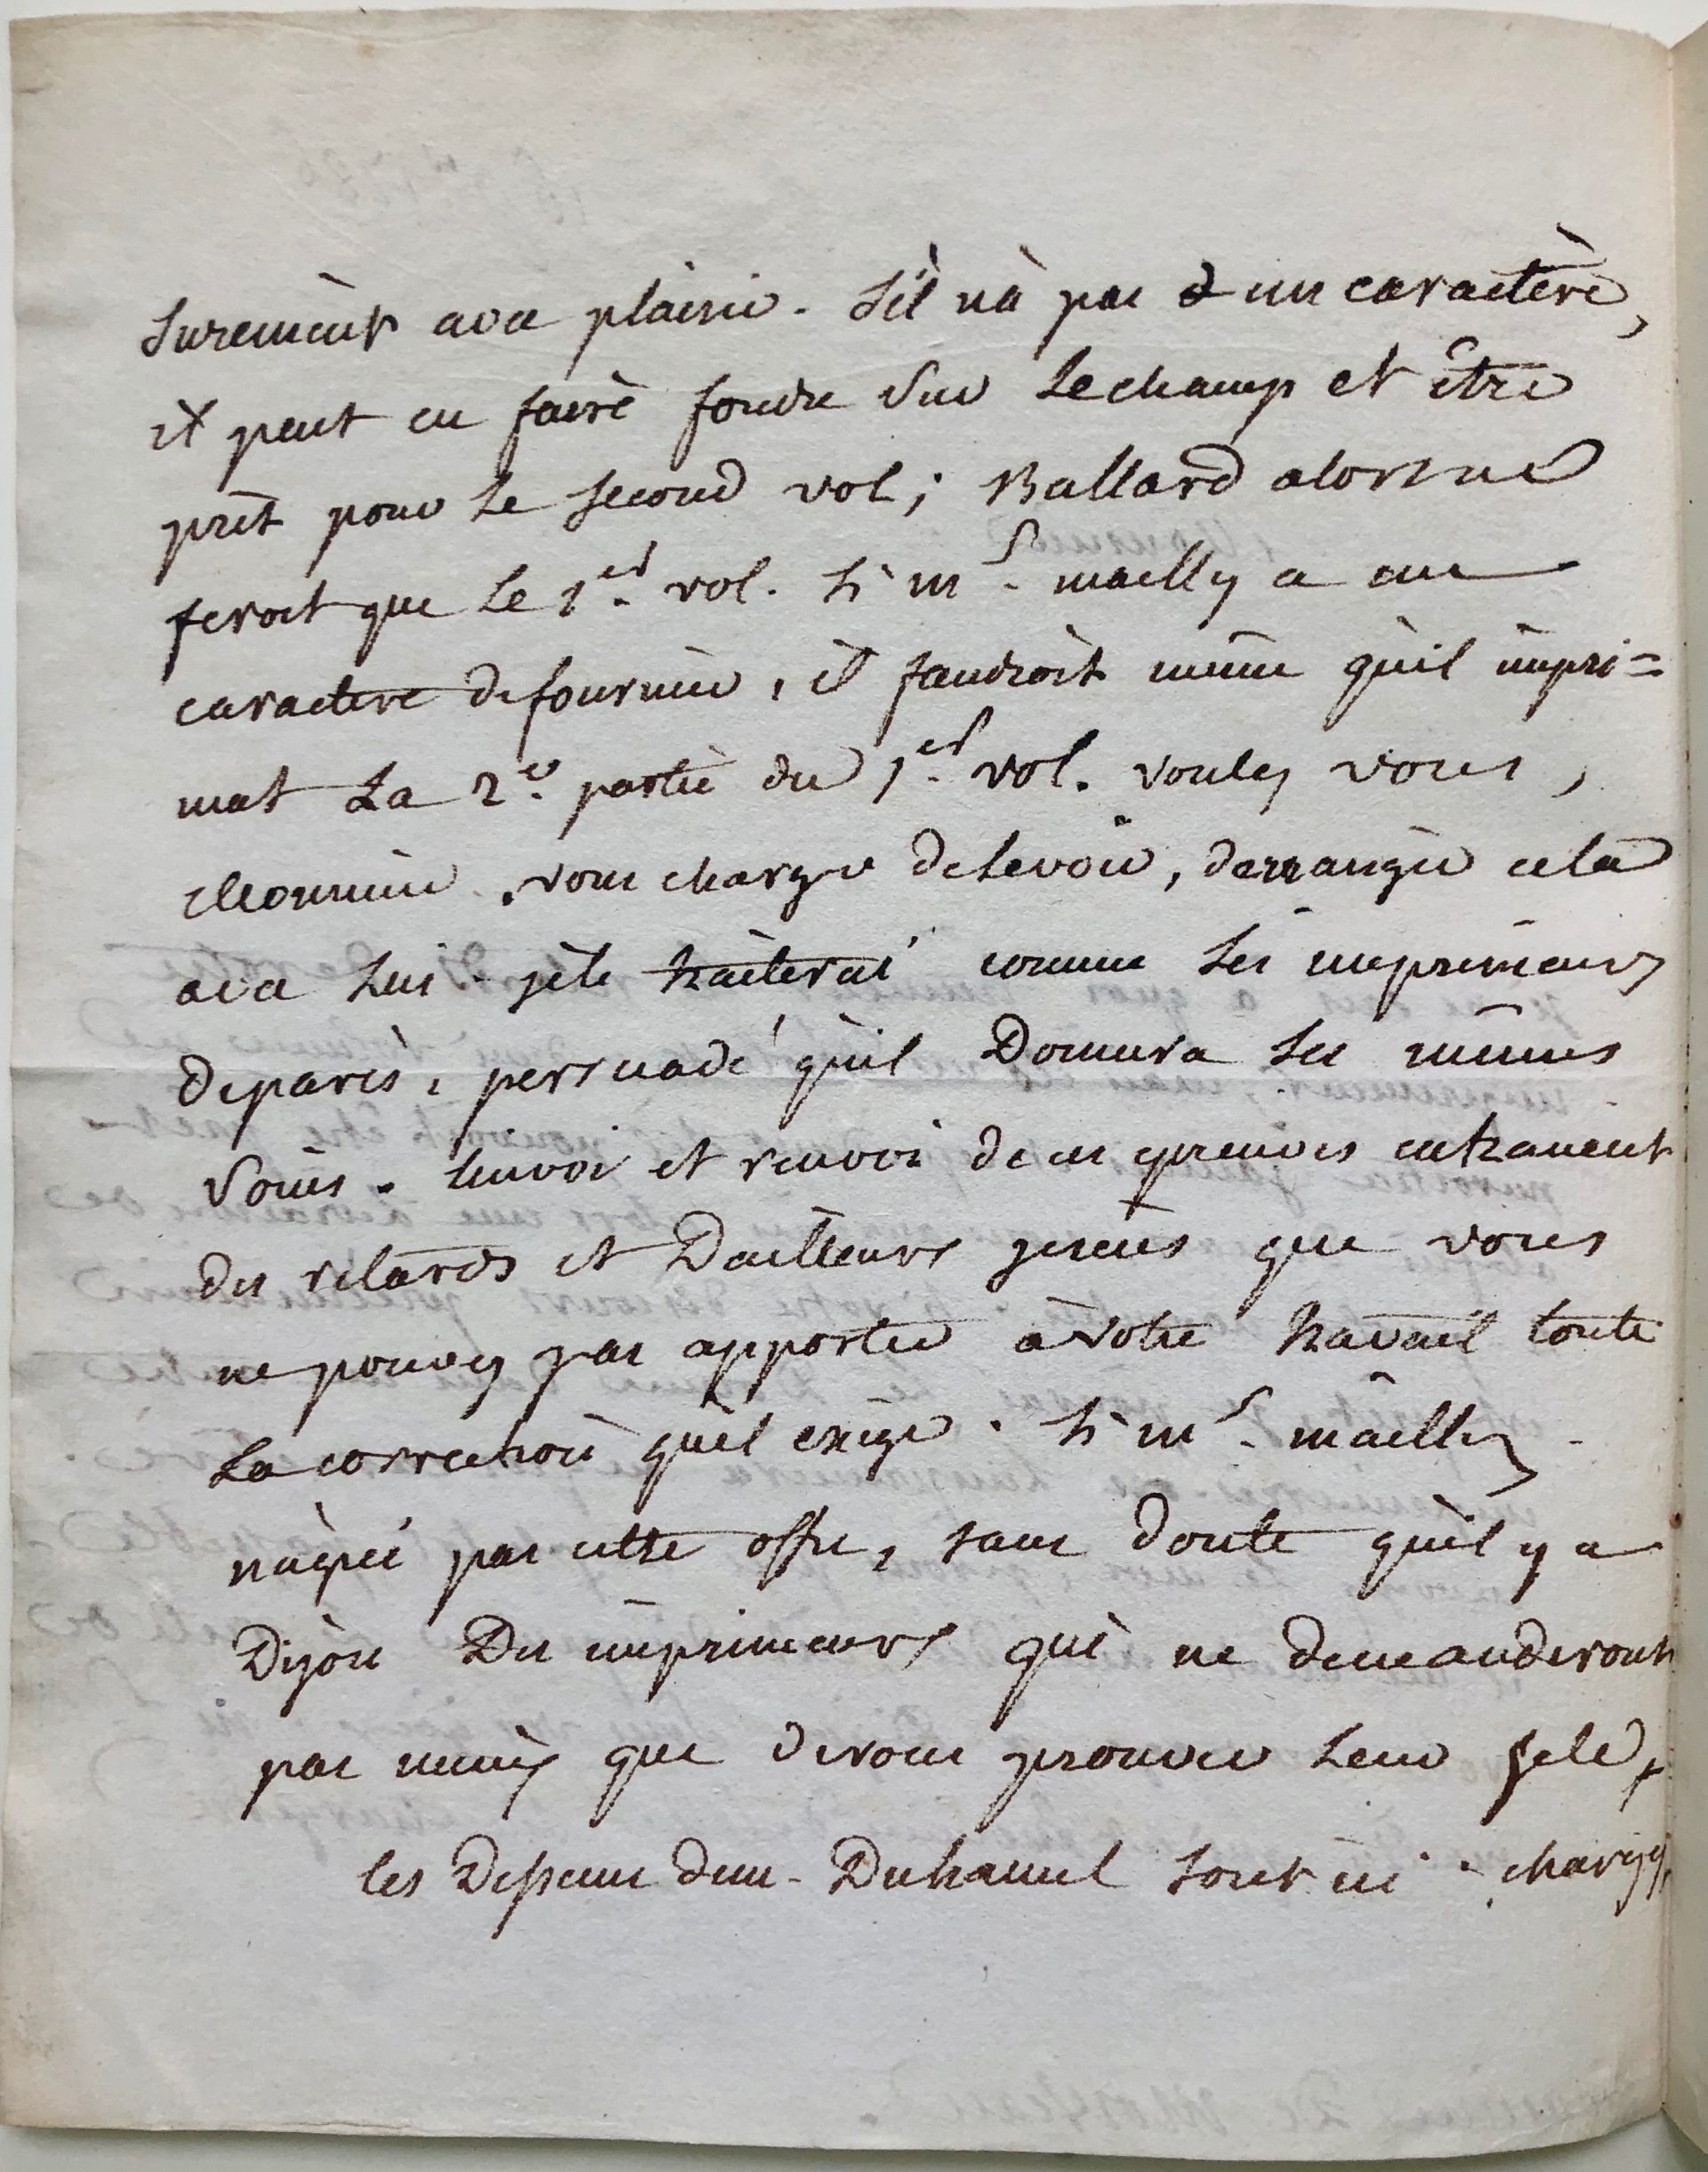 surement avec plaisir. s'il n'a pas d un caractère,
il peut en faire fondre sur lechamp et être
prêt pour le second vol; Ballard alors ne
feroit que le 1er vol. si mr mailly a un
caractere defournier, il faudroit même qu'il impri=
mat La 2e partie du 1er vol. voulez vous,
Monsieur, vous charger delevoir, darranger cela
avec lui. jele traiterai comme les imprimeurs
deparis, persuadé qu'il Donnera les mêmes
soins. lenvoi et renvoi de ces epreuves entrainent
des retards et Dailleurs jesens que vous
ne pouvez pas apporter àvotre travail toute
La correction qu'il exige. si mr mailly
nagrée pas cette offre, sans doute qu'il y a
Dijon Des imprimeurs qui ne demanderont
pas mieux que devous prouver leur zele,
les Depenses dem. Duhamel sont ici. chargez